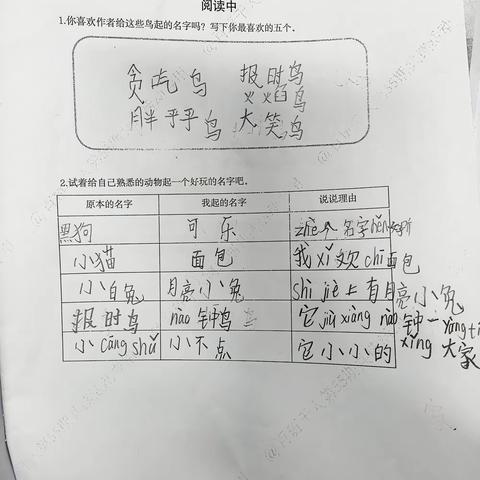 阅读中
1.你喜欢作者给这些鸟起的名字吗？写下你最喜欢的五个。
贪吃鸟 报时鸟
火焰鸟
胖乎乎鸟 大笑鸟
2.试着给自己熟悉的动物起一个好玩的名字吧。
原本的名字 我起的名字 说说理由
黑狗 可乐 zhè个名字hěn
小猫 面包 我xǐ欢chī面包
小白兔 月亮小兔 shì jiè上有月亮小兔
报时鸟 nào钟鸟 它jiù xiàng nào钟一yàng tí xǐng大家
小cāng shǔ 小不点 它小小的